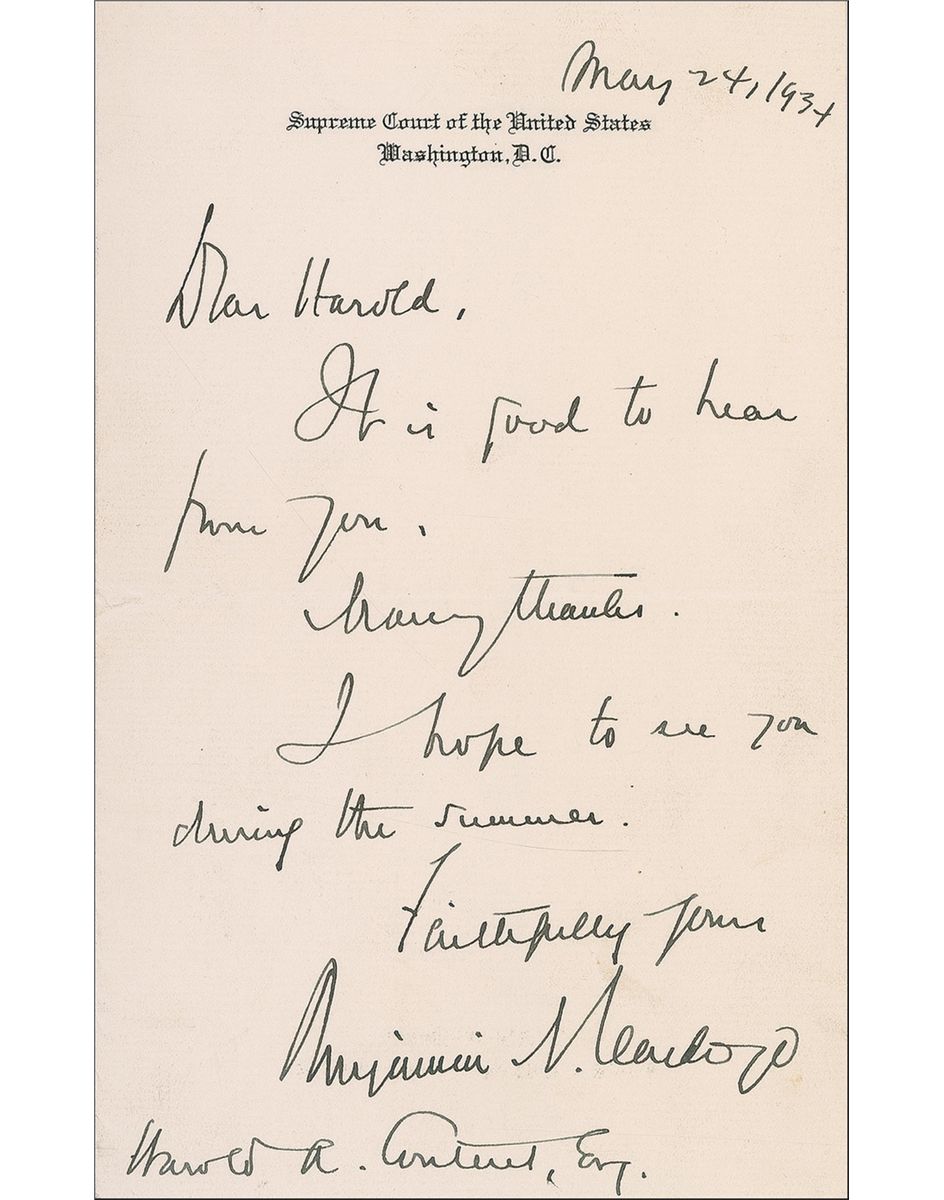 May 24, 1934
Supreme Court of the United States
Washington, D.C.
Dear Harold,
It is good to hear
from you.
Many thanks.
I hope to see you
during the summer.
Faithfully yours
Benjamin N. Cardozo
Harold R. Content, Esq.